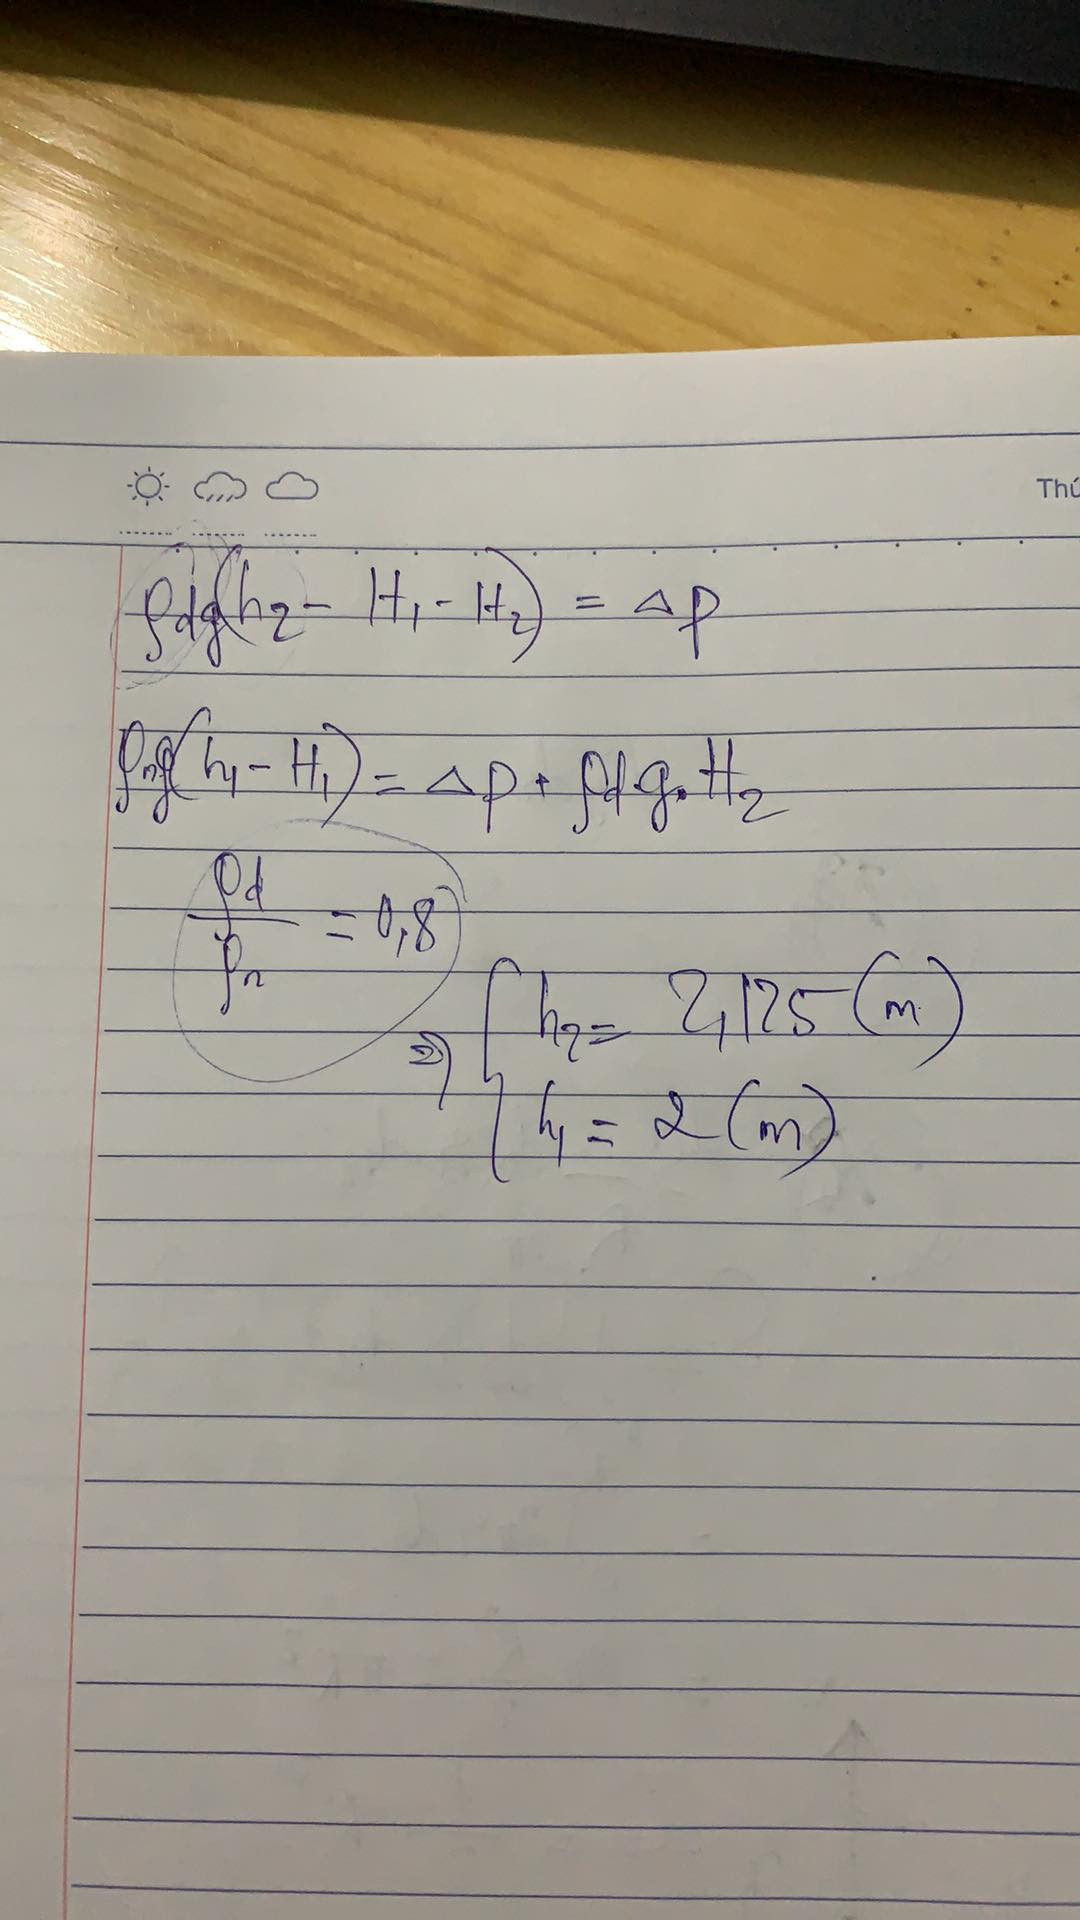 Thứ
ρdg(h₂ - H₁ - H₂) = Δp
ρng(h₁ - H₁) = Δp + ρdg.H₂
ρd/ρn = 0,8
⇒ { h₂ = 2,125 (m)
h₁ = 2 (m)